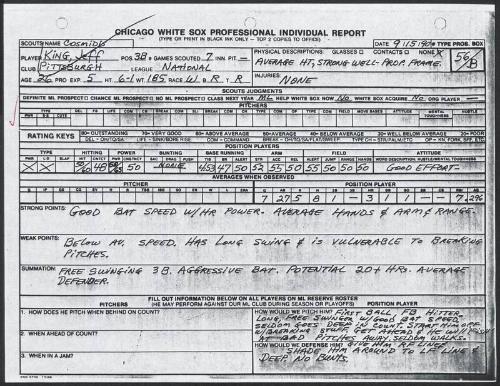 CHICAGO WHITE SOX PROFESSIONAL INDIVIDUAL REPORT
(TYPE OR PRINT IN BLACK INK ONLY — TOP 2 COPIES TO OFFICE)
SCOUTS NAME COSMIDIS
DATE 9/15/90
TYPE PROB. BOX
PLAYER KING, JEFF POS 3B # GAMES SCOUTED 7 INN. PIT. -
CLUB PITTSBURGH LEAGUE NATIONAL
AGE 26 PRO EXP. 5 HT. 6-1 WT. 185 RACE W. B R T R
PHYSICAL DESCRIPTION: GLASSES CONTACTS
AVERAGE HT, STRONG WELL-PROP. FRAME.
INJURIES:
NONE
56/B
SCOUTS JUDGMENTS
DEFINITE ML PROSPECT CHANCE ML PROSPECT NO ML PROSPECT CLASS NEXT YEAR ML HELP WHITE SOX NOW NO WHITE SOX ACQUIRE NO ORG PLAYER -
PITCHERS
RATING KEYS
80—OUTSTANDING 70—VERY GOOD 60—ABOVE AVERAGE 50—AVERAGE 40—BELOW AVERAGE 30—WELL BELOW AVERAGE 20—POOR
POSITION PLAYERS
HITTING BUNTING BASE RUNNING ARM FIELDING ATTITUDE
X X NONE GOOD EFFORT-
AVERAGES WHEN OBSERVED
PITCHER POSITION PLAYER
7 27 5 8 1 - 3 1 1 - - 7 .296
STRONG POINTS:
GOOD BAT SPEED W/HR POWER. AVERAGE HANDS & ARM & RANGE.
WEAK POINTS:
BELOW AV. SPEED. HAS LONG SWING & IS VULNERABLE TO BREAKING
PITCHES.
SUMMATION:
FREE SWINGING 3B. AGGRESSIVE BAT. POTENTIAL 20+ HRS. AVERAGE
DEFENDER.
FILL OUT INFORMATION BELOW ON ALL PLAYERS ON ML RESERVE ROSTER
(HE MAY PERFORM AGAINST OUR ML CLUB DURING SEASON OR PLAYOFFS)
PITCHERS
POSITION PLAYER
1. HOW DOES HE PITCH WHEN BEHIND ON COUNT?
2. WHEN AHEAD OF COUNT?
3. WHEN IN A JAM?
HOW WOULD WE PITCH HIM? FIRST BALL FB HITTER
LONG, FREE SWINGER W/GOOD BAT SPEED.
SELDOM GOES DEEP IN COUNT. START HIM OFF
W/BREAKING STUFF, GET AHEAD & HE WILL FISH
AT BAD PITCHES AWAY. SELDOM WALKS.
HOW WOULD WE DEFENSE HIM? GIVE HIM RF LINE
SHADE HIM AROUND TO LF LINE &
DEEP. NO BUNTS.